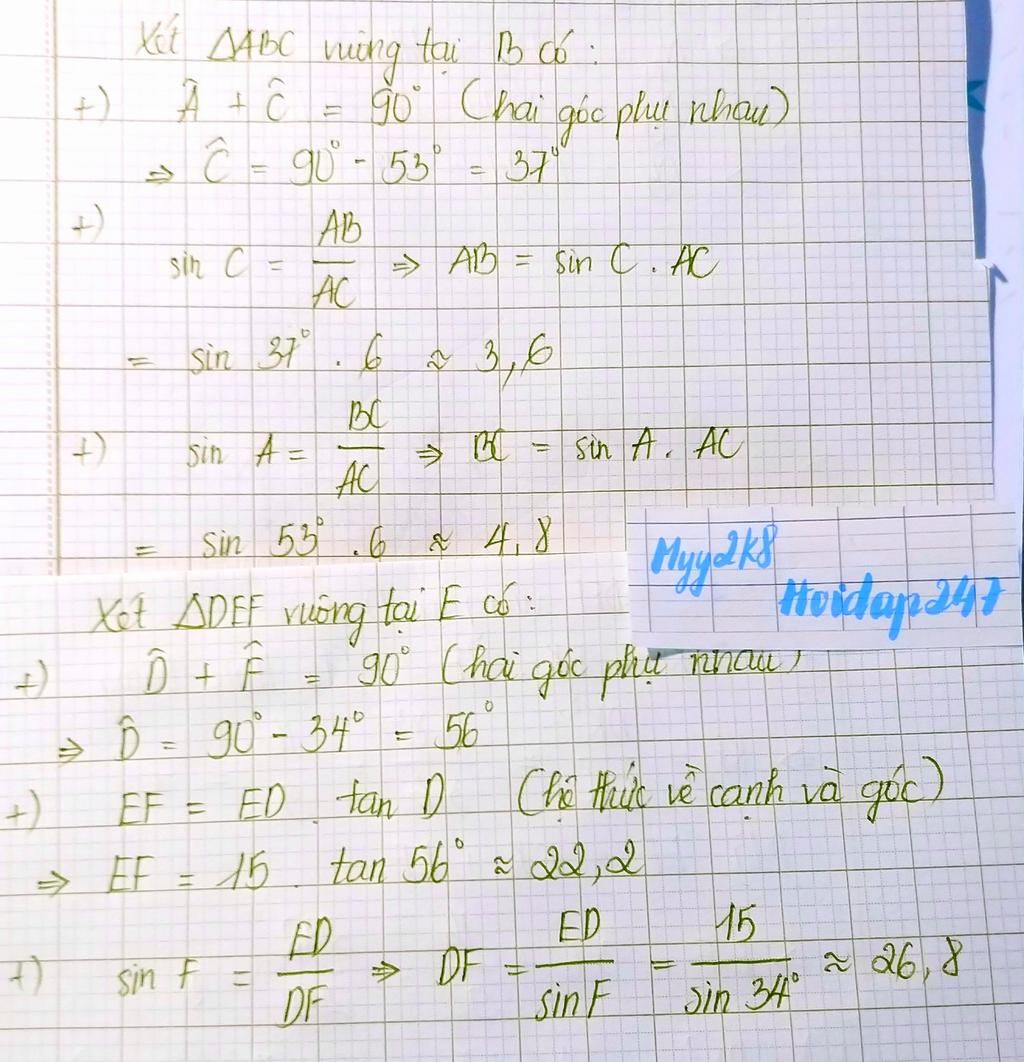 Xét ΔABC vuông tại B có:
+) Â + Ĉ = 90° (hai góc phụ nhau)
⇒ Ĉ = 90° - 53° = 37°
+) sin C = AB/AC ⇒ AB = sin C . AC
= sin 37° . 6 ≈ 3,6
+) sin A = BC/AC ⇒ BC = sin A . AC
= sin 53° . 6 ≈ 4,8
Myy2k8
Hoidap247
Xét ΔDEF vuông tại E có:
+) D̂ + F̂ = 90° (hai góc phụ nhau)
⇒ D̂ = 90° - 34° = 56°
+) EF = ED . tan D (hệ thức về cạnh và góc)
⇒ EF = 15 . tan 56° ≈ 22,2
+) sin F = ED/DF ⇒ DF = ED/sin F = 15/sin 34° ≈ 26,8